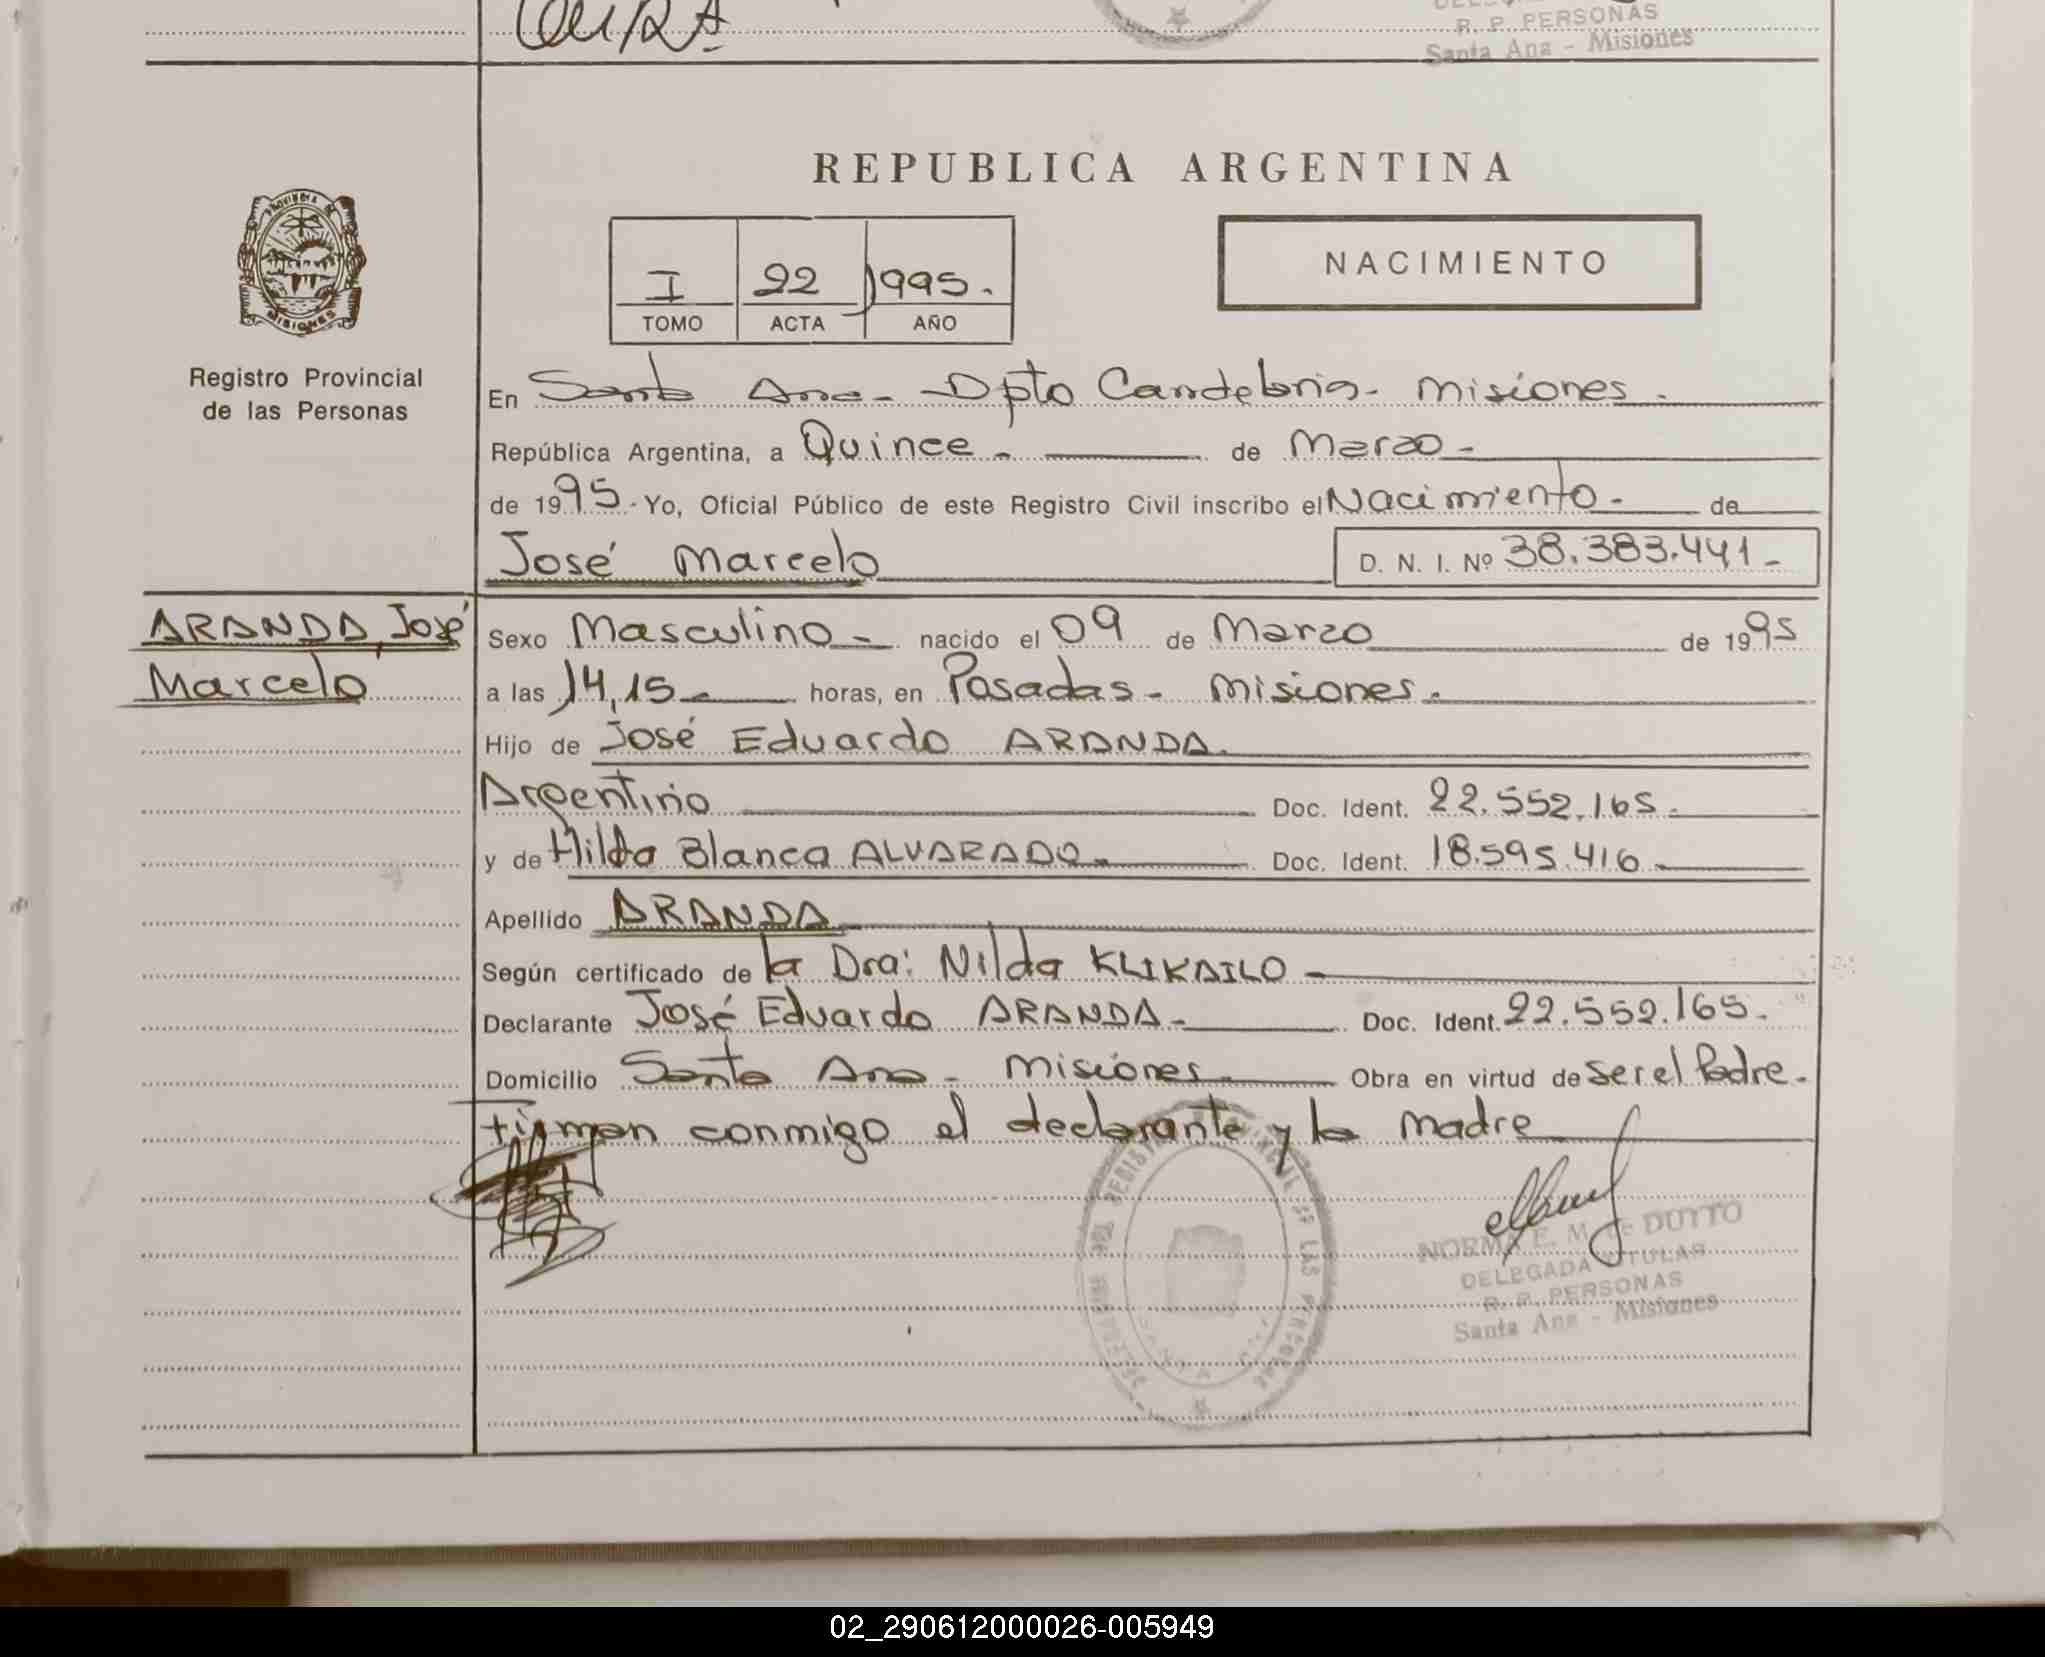 R. P. PERSONAS
Santa Ana - Misiones
REPUBLICA ARGENTINA
PROVINCIA DE
MISIONES
Registro Provincial
de las Personas
I 22 1995.
TOMO ACTA AÑO
NACIMIENTO
En Santa Ana - Dpto Candelaria - Misiones.
República Argentina, a Quince - de Marzo -
de 1995 - Yo, Oficial Público de este Registro Civil inscribo el Nacimiento - de
José Marcelo D. N. I. Nº 38.383.441 -
ARANDA, José
Marcelo
Sexo Masculino - nacido el 09 de Marzo de 1995
a las 14,15 - horas, en Posadas - Misiones.
Hijo de José Eduardo ARANDA.
Argentino Doc. Ident. 22.552.165.
y de Hilda Blanca ALVARADO - Doc. Ident. 18.595.416
Apellido ARANDA
Según certificado de la Dra: Nilda KLIKAILO -
Declarante José Eduardo ARANDA - Doc. Ident. 22.552.165.
Domicilio Santa Ana - Misiones Obra en virtud de ser el Padre.
Firman conmigo el declarante y la madre
NORMA E. M. de DUTTO
DELEGADA TITULAR
R. P. PERSONAS
Santa Ana - Misiones
02_290612000026-005949